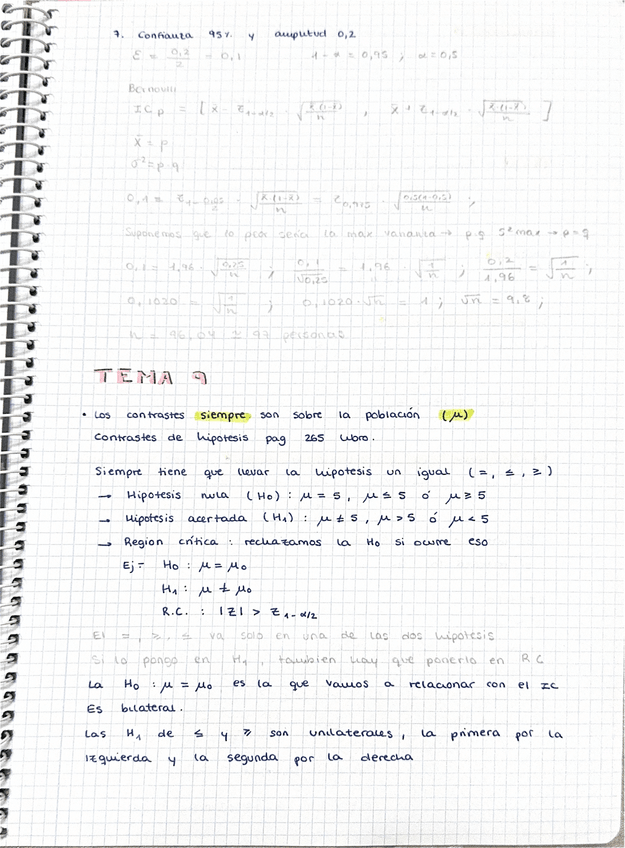 7. Confianza 95% y amplitud 0,2
E = 0,2/2 = 0,1 1-α = 0,95 ; α = 0,5
Bernoulli
IC p = [ x̄ - z 1-α/2 · √(x̄(1-x̄)/n) , x̄ + z 1-α/2 · √(x̄(1-x̄)/n) ]
x̄ = p
σ² = p·q
0,1 = z 1-0,05/2 · √(x̄(1-x̄)/n) = z 0,975 · √(0,5(1-0,5)/n) ;
Suponemos que lo peor seria la max varianza → p q S² max → p = q
0,1 = 1,96 · √(0,25/n) ; 0,1/√0,25 = 1,96 · √(1/n) ; 0,2/1,96 = √(1/n) ;
0,1020 = √(1/n) ; 0,1020·√n = 1 ; √n = 9,8 ;
n = 96,04 ≃ 97 personas
TEMA 9
• Los contrastes siempre son sobre la población (μ)
Contrastes de hipotesis pag 265 libro.
Siempre tiene que llevar la hipotesis un igual (=, ≤, ≥)
→ Hipotesis nula (H0) : μ = 5, μ ≤ 5 ó μ ≥ 5
→ Hipotesis acertada (H1) : μ ≠ 5, μ > 5 ó μ < 5
→ Region crítica : rechazamos la H0 si ocurre eso
Ej = H0 : μ = μ0
H1 : μ ≠ μ0
R.C. : |Z| > Z 1-α/2
El =, ≥, ≤ va solo en una de las dos hipotesis
Si lo pongo en H1, tambien hay que ponerlo en RC
La H0 : μ = μ0 es la que vamos a relacionar con el IC
Es bilateral.
Las H1 de ≤ y ≥ son unilaterales, la primera por la
izquierda y la segunda por la derecha